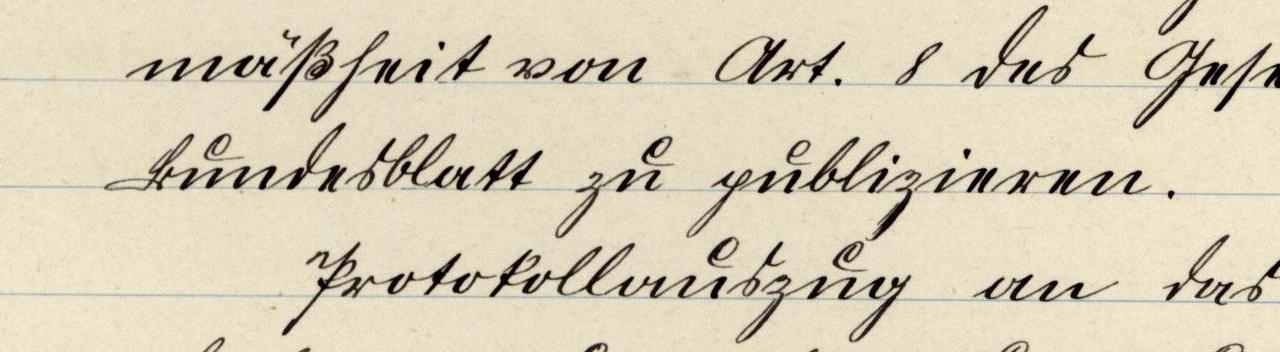 mäßheit von Art. 8 des Gese
Bundesblatt zu publizieren.
Protokollauszug an das